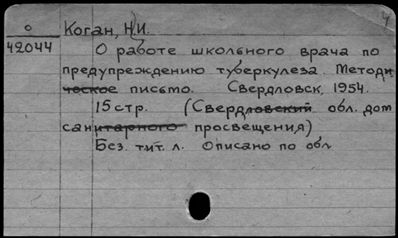 4
о
42044
Коган, Н.И.
О работе школьного врача по
предупреждению туберкулеза. Методи
ческое письмо. Свердловск, 1954.
15 стр. (Свердловский обл. дом
санитарного просвещения)
Без. тит. л. Описано по обл.